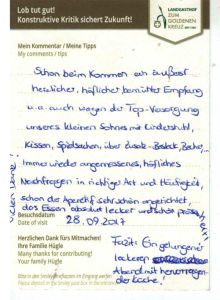 Lob tut gut!
Konstruktive Kritik sichert Zukunft!
LANDGASTHOF
ZUM
GOLDENEN
KREUZ
Mein Kommentar / Meine Tipps
My comments / tips
Schon beim Kommen ein äußerst
herzlicher, höflicher bemühter Empfang
u.a. auch wegen der Top-Versorgung
unseres kleinen Sohnes mit Kinderstuhl,
Kissen, Spielsachen, über Besteck, Becher,...
Immer wieder angemessenes, höfliches
Nachfragen in richtiger Art und Häufigkeit,
schon die Aperitif sehr schön angerichtet,
das Essen absolut lecker und schön
Vielen Dank!
Besuchsdatum
Date of visit
28.09.2017
Herzlichen Dank fürs Mitmachen!
Ihre Familie Hügle
Many thanks for contributing!
Your family Hügle
Fazit: Ein gelungener
leckerer
Abend mit hervorragender
Küche!
Bitte in den Smiley-Briefkasten im Eingang werfen